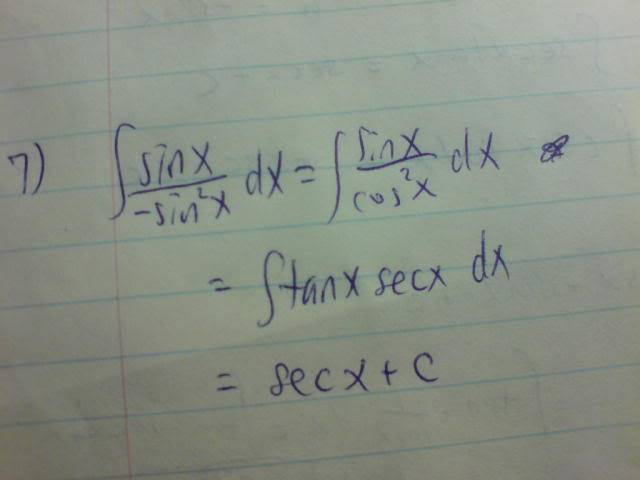 7) ∫ sinx / -sin²x dx = ∫ sinx / cos²x dx
= ∫ tanx secx dx
= secx + c